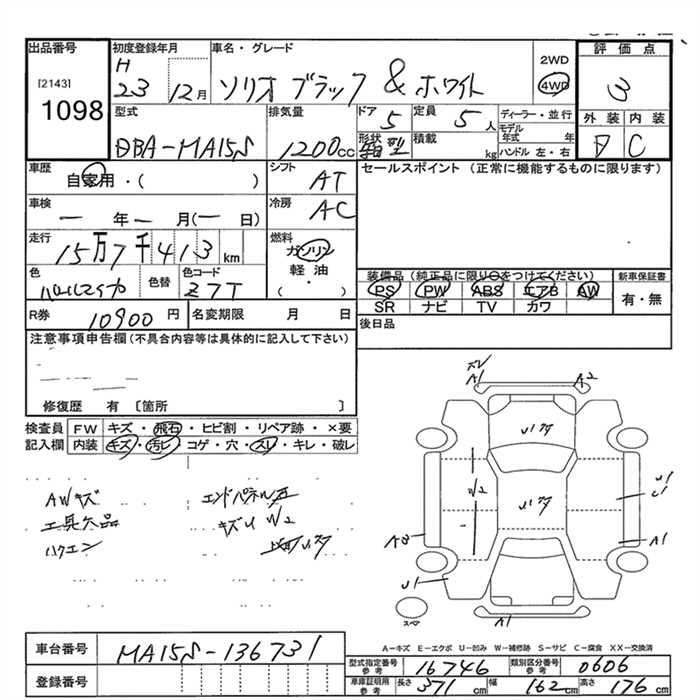 出品番号 初度登録年月 車名・グレード 2WD 評価点
[2143] H 23 12月 ソリオ ブラック & ホワイト 4WD 3
1098
型式 排気量 ドア 5 定員 5人 ディーラー・並行 外装 内装
DBA-MA15S 1200cc 形状 箱型 積載 kg モデル年式 年 C
ハンドル 左・右
車歴 シフト セールスポイント (正常に機能するものに限ります)
自家用・( ) AT
車検 冷房
一 年 一 月(一 日) AC
走行 燃料
15万7千413km ガソリン
軽油
( ・ )
色 色替 色コード 装備品(純正品に限り○をつけてください) 新車保証書
パールエマイカ Z7T PS PW ABS エアB AW 有・無
SR ナビ TV カワ
R券 10900円 名変期限 月 日 後日品
注意事項申告欄(不具合内容等は具体的に記入して下さい)
修復歴 有 〔箇所 〕
検査員 FW キズ・飛石・ヒビ割・リペア跡・×要
記入欄 内装 キズ・汚レ・コゲ・穴・スレ・キレ・破レ
AWキズ エンドパネル
工具欠品 キズU W2
ハクエン
A1 A2
U1
W2
U1
U1
A1
U1
スペア A1
A−キズ E−エクボ U−凹み W−補修跡 S−サビ C−腐食 XX−交換済
車台番号 MA15S-136731
型式指定番号 参考 16746 類別区分番号 参考 0606
登録番号
車庫証明用 参考 長さ 371cm 幅 162cm 高さ 176cm